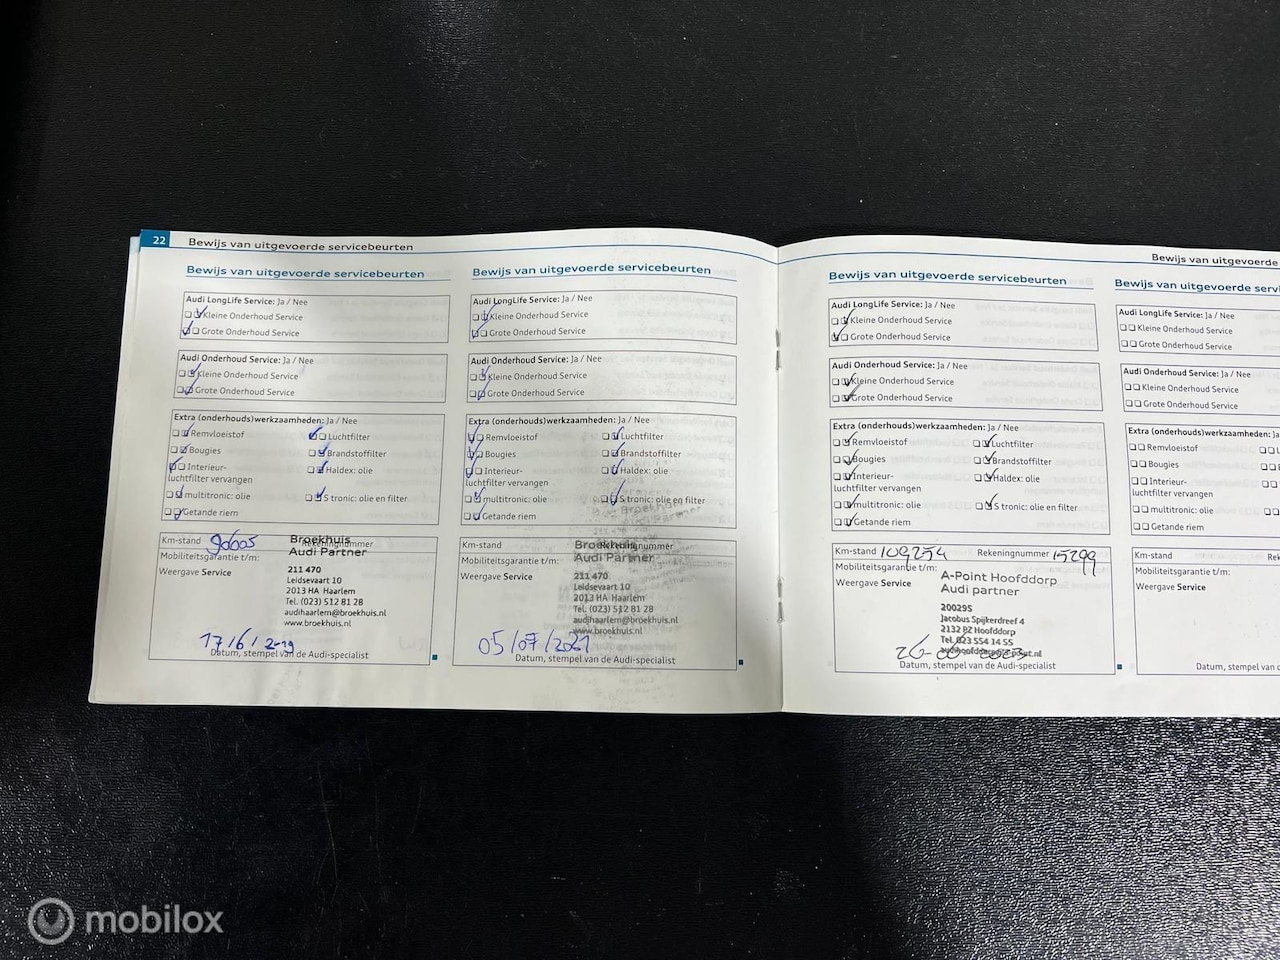 22 Bewijs van uitgevoerde servicebeurten
Bewijs van uitgevoerde servicebeurten
Audi LongLife Service: Ja / Nee
Kleine Onderhoud Service
Grote Onderhoud Service
Audi Onderhoud Service: Ja / Nee
Kleine Onderhoud Service
Grote Onderhoud Service
Extra (onderhouds)werkzaamheden: Ja / Nee
Remvloeistof Luchtfilter
Bougies Brandstoffilter
Interieur- Haldex: olie
luchtfilter vervangen
multitronic: olie S tronic: olie en filter
Getande riem
Km-stand 90605 Rekeningnummer
Broekhuis
Audi Partner
Mobiliteitsgarantie t/m:
Weergave Service
211 470
Leidsevaart 10
2013 HA Haarlem
Tel. (023) 512 81 28
audihaarlem@broekhuis.nl
www.broekhuis.nl
17/6/2019
Datum, stempel van de Audi-specialist
Bewijs van uitgevoerde servicebeurten
Audi LongLife Service: Ja / Nee
Kleine Onderhoud Service
Grote Onderhoud Service
Audi Onderhoud Service: Ja / Nee
Kleine Onderhoud Service
Grote Onderhoud Service
Extra (onderhouds)werkzaamheden: Ja / Nee
Remvloeistof Luchtfilter
Bougies Brandstoffilter
Interieur- Haldex: olie
luchtfilter vervangen
multitronic: olie S tronic: olie en filter
Getande riem
Km-stand Rekeningnummer
Broekhuis
Audi Partner
Mobiliteitsgarantie t/m:
Weergave Service
211 470
Leidsevaart 10
2013 HA Haarlem
Tel. (023) 512 81 28
audihaarlem@broekhuis.nl
www.broekhuis.nl
05/07/2021
Datum, stempel van de Audi-specialist
Bewijs van uitgevoerde
Bewijs van uitgevoerde servicebeurten
Audi LongLife Service: Ja / Nee
Kleine Onderhoud Service
Grote Onderhoud Service
Audi Onderhoud Service: Ja / Nee
Kleine Onderhoud Service
Grote Onderhoud Service
Extra (onderhouds)werkzaamheden: Ja / Nee
Remvloeistof Luchtfilter
Bougies Brandstoffilter
Interieur- Haldex: olie
luchtfilter vervangen
multitronic: olie S tronic: olie en filter
Getande riem
Km-stand 109254 Rekeningnummer 15299
Mobiliteitsgarantie t/m:
Weergave Service
A-Point Hoofddorp
Audi partner
20029S
Jacobus Spijkerdreef 4
2132 PZ Hoofddorp
Tel. 023 554 14 55
Datum, stempel van de Audi-specialist
Bewijs van uitgevoerde
Audi LongLife Service: Ja / Nee
Kleine Onderhoud Service
Grote Onderhoud Service
Audi Onderhoud Service: Ja / Nee
Kleine Onderhoud Service
Grote Onderhoud Service
Extra (onderhouds)werkzaamheden:
Remvloeistof
Bougies
Interieur-
luchtfilter vervangen
multitronic: olie
Getande riem
Km-stand
Mobiliteitsgarantie t/m:
Weergave Service
Datum, stempel van
mobilox